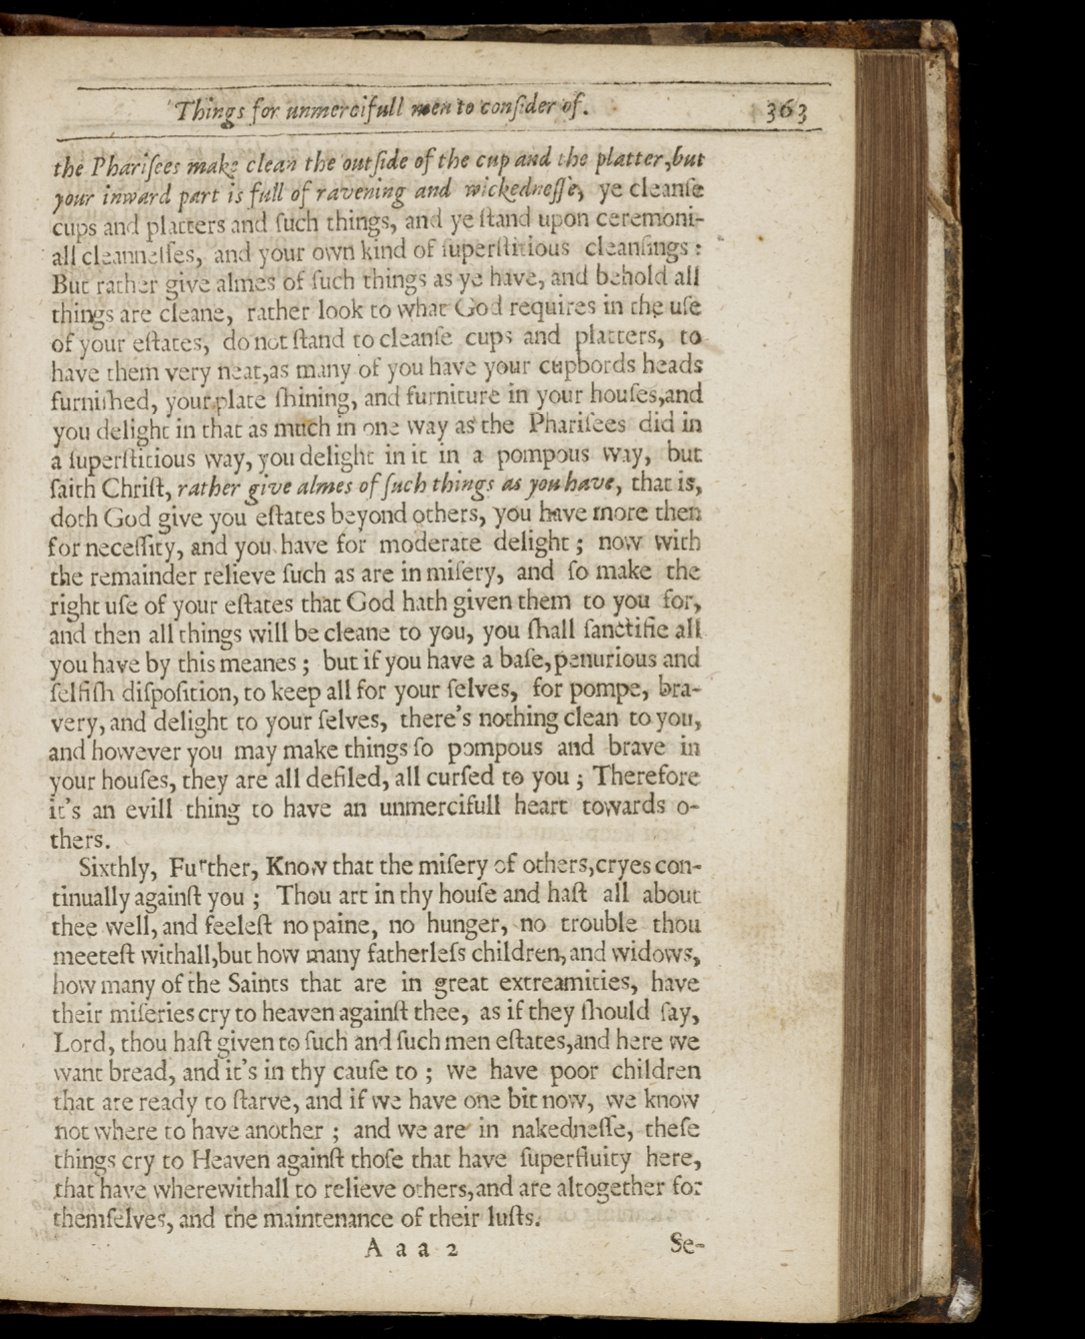 Things for unmercifull men to conſider of. 363
the Phariſees make clean the outſide of the cup and the platter,but
your inward part is full of ravening and wickedneſſe, ye cleanſe
cups and platters and ſuch things, and ye ſtand upon ceremoni-
all cleanneſſes, and your own kind of ſuperſtitious cleanſings:
But rather give almes of ſuch things as ye have, and behold all
things are cleane, rather look to what God requires in the uſe
of your eſtates, do not ſtand to cleanſe cups and platters, to
have them very neat,as many of you have your cupbords heads
furniſhed, your plate ſhining, and furniture in your houſes,and
you delight in that as much in one way as the Phariſees did in
a ſuperſtitious way, you delight in it in a pompous way, but
ſaith Chriſt, rather give almes of ſuch things as you have, that is,
doth God give you eſtates beyond others, you have more then
for neceſſity, and you have for moderate delight; now with
the remainder relieve ſuch as are in miſery, and ſo make the
right uſe of your eſtates that God hath given them to you for,
and then all things will be cleane to you, you ſhall ſanctifie all
you have by this meanes; but if you have a baſe,penurious and
ſelfiſh diſpoſition, to keep all for your ſelves, for pompe, bra-
very, and delight to your ſelves, there's nothing clean to you,
and however you may make things ſo pompous and brave in
your houſes, they are all defiled, all curſed to you; Therefore
it's an evill thing to have an unmercifull heart towards o-
thers.
Sixthly, Further, Know that the miſery of others,cryes con-
tinually againſt you; Thou art in thy houſe and haſt all about
thee well, and feeleſt no paine, no hunger, no trouble thou
meeteſt withall,but how many fatherleſs children,and widows,
how many of the Saints that are in great extreamities, have
their miſeries cry to heaven againſt thee, as if they ſhould ſay,
Lord, thou haſt given to ſuch and ſuch men eſtates,and here we
want bread, and it's in thy cauſe to; we have poor children
that are ready to ſtarve, and if we have one bit now, we know
not where to have another; and we are in nakedneſſe, theſe
things cry to Heaven againſt thoſe that have ſuperfluity here,
that have wherewithall to relieve others,and are altogether for
themſelves, and the maintenance of their luſts.
A a a 2 Se-